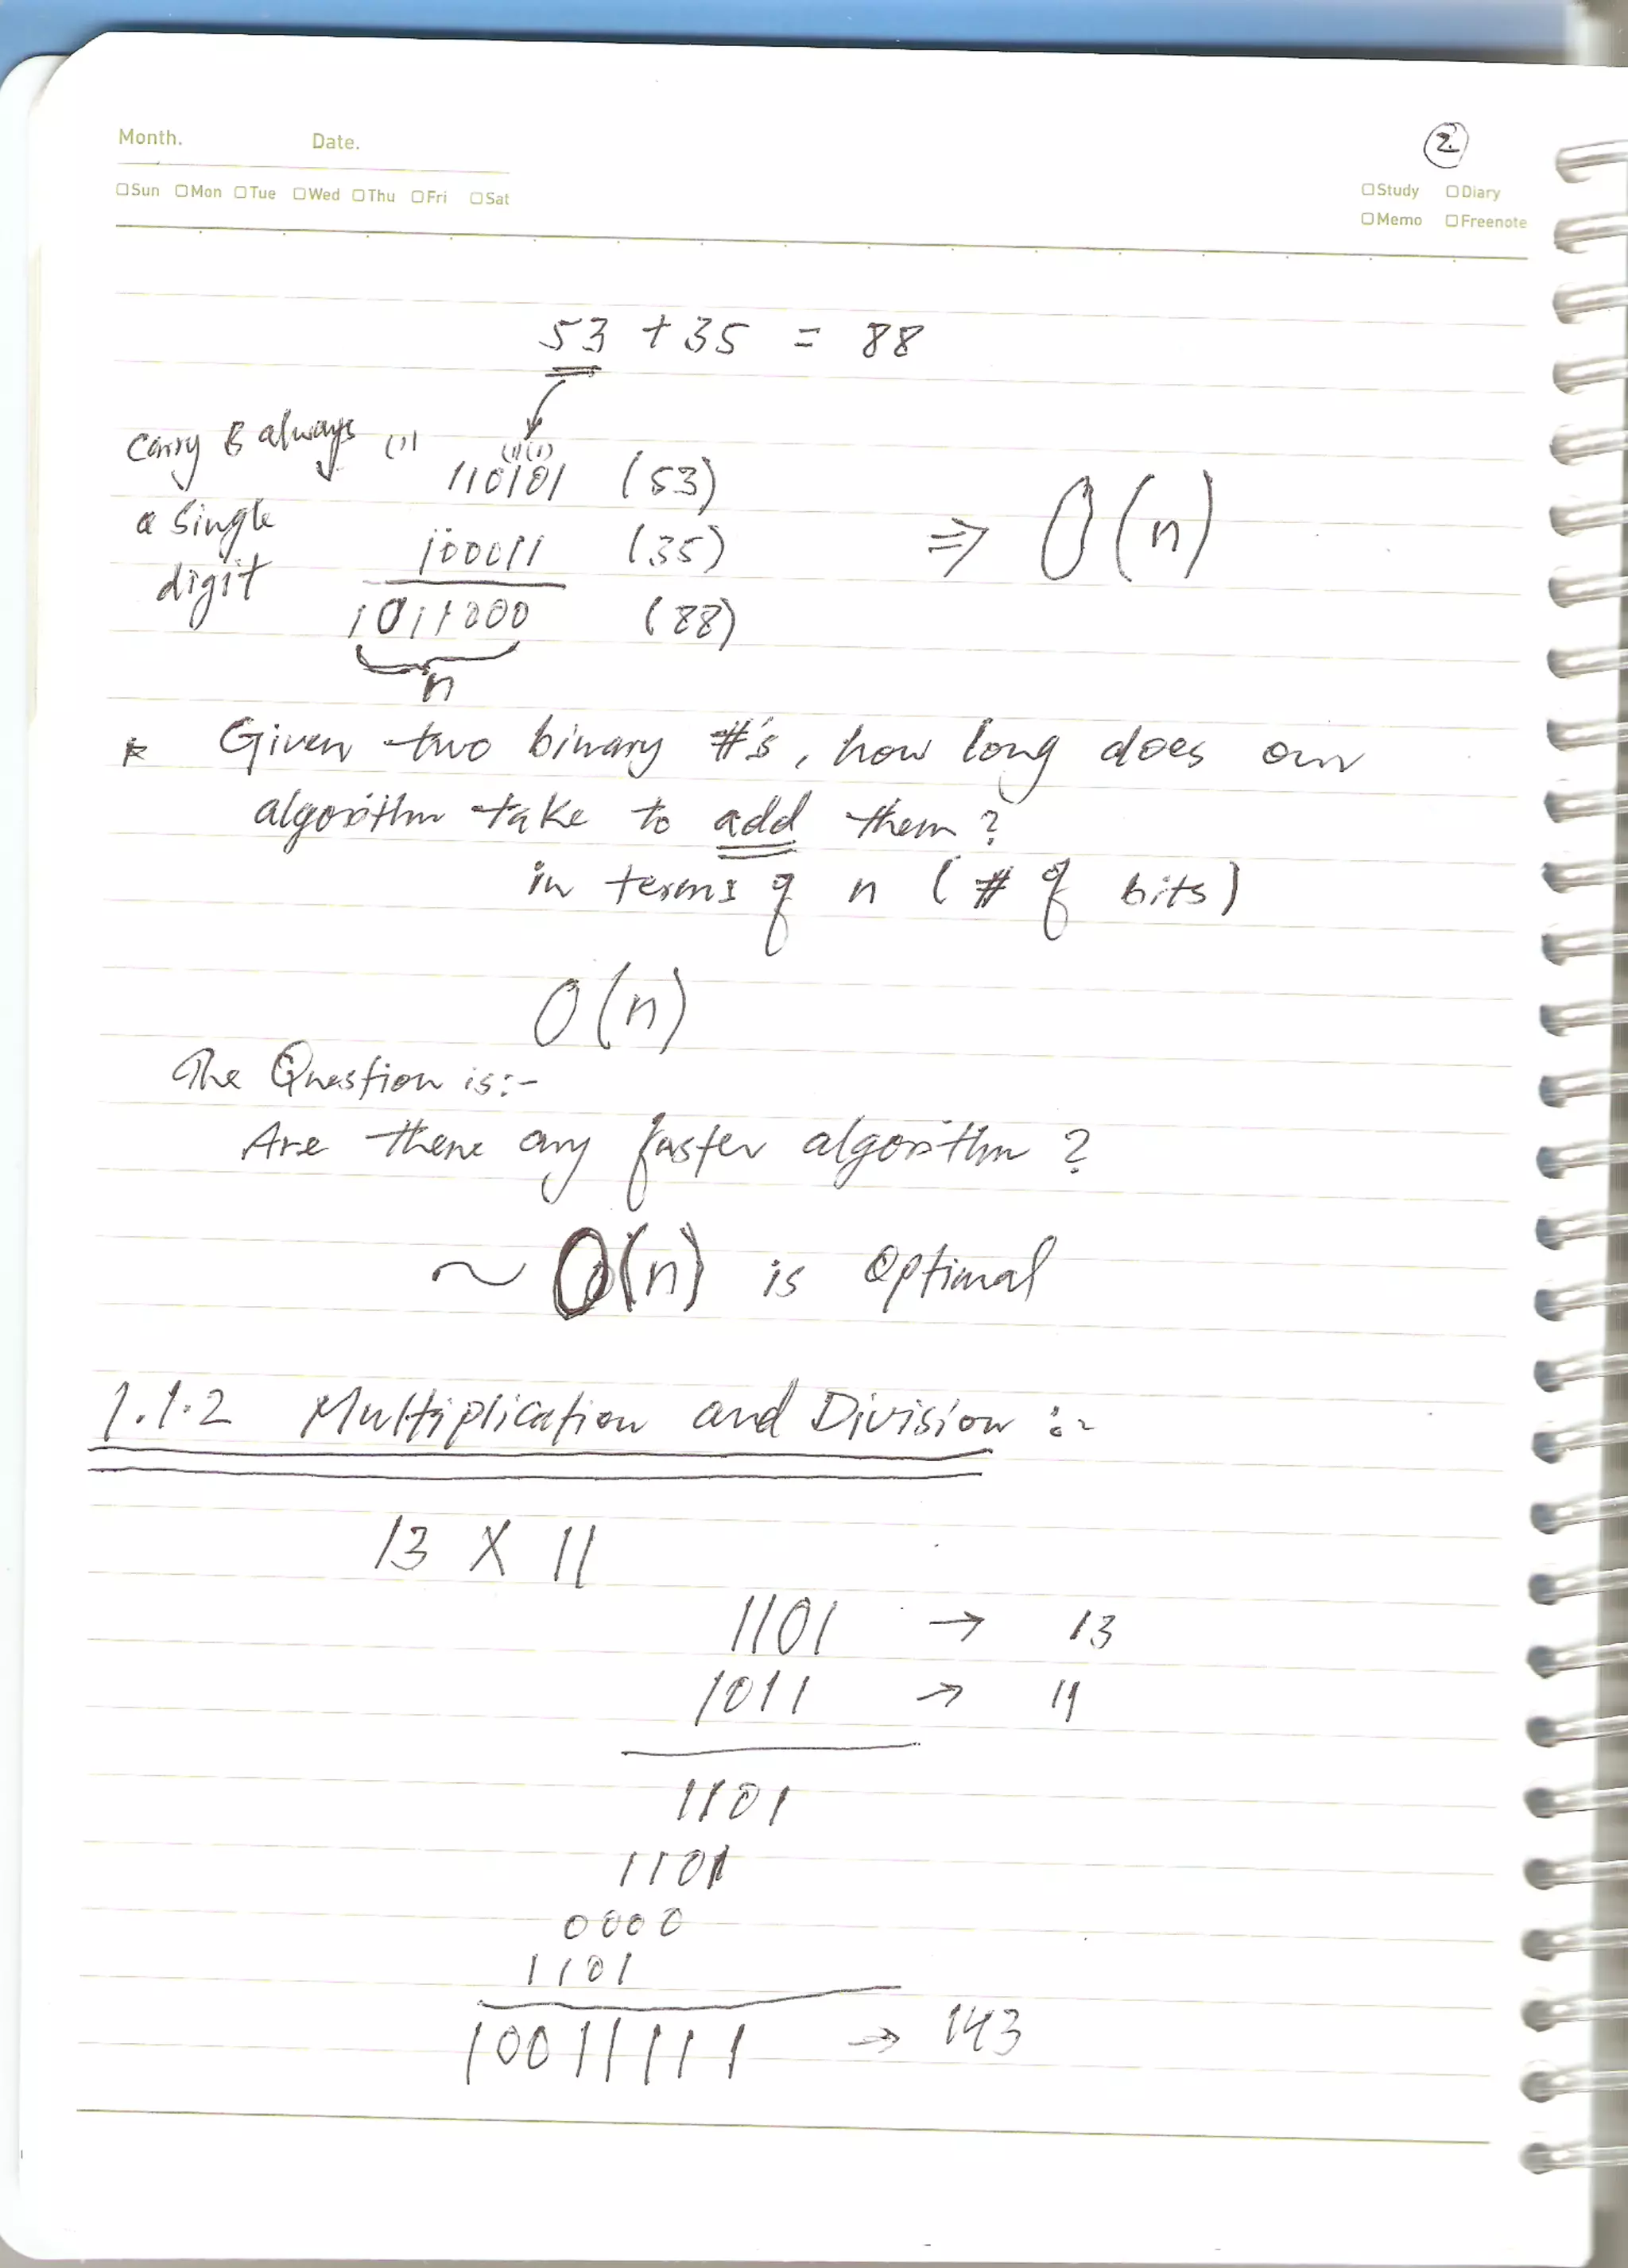 Month. Date.
②
□Sun □Mon □Tue □Wed □Thu □Fri □Sat
□Study □Diary
□Memo □Freenote
53 + 35 = 88
Carry is always (1) (1)(1)
110101 (53)
a single
100011 (35) ⇒ O(n)
digit
1011000 (88)
n
* Given two binary #'s, how long does our
algorithm take to add them?
in terms of n (# of bits)
O(n)
The Question is:-
Are there any faster algorithm?
~ O(n) is Optimal
1.1.2 Multiplication and Division :-
13 X 11
1101 → 13
1011 → 11
1101
1101
0000
1101
10011111 → 143